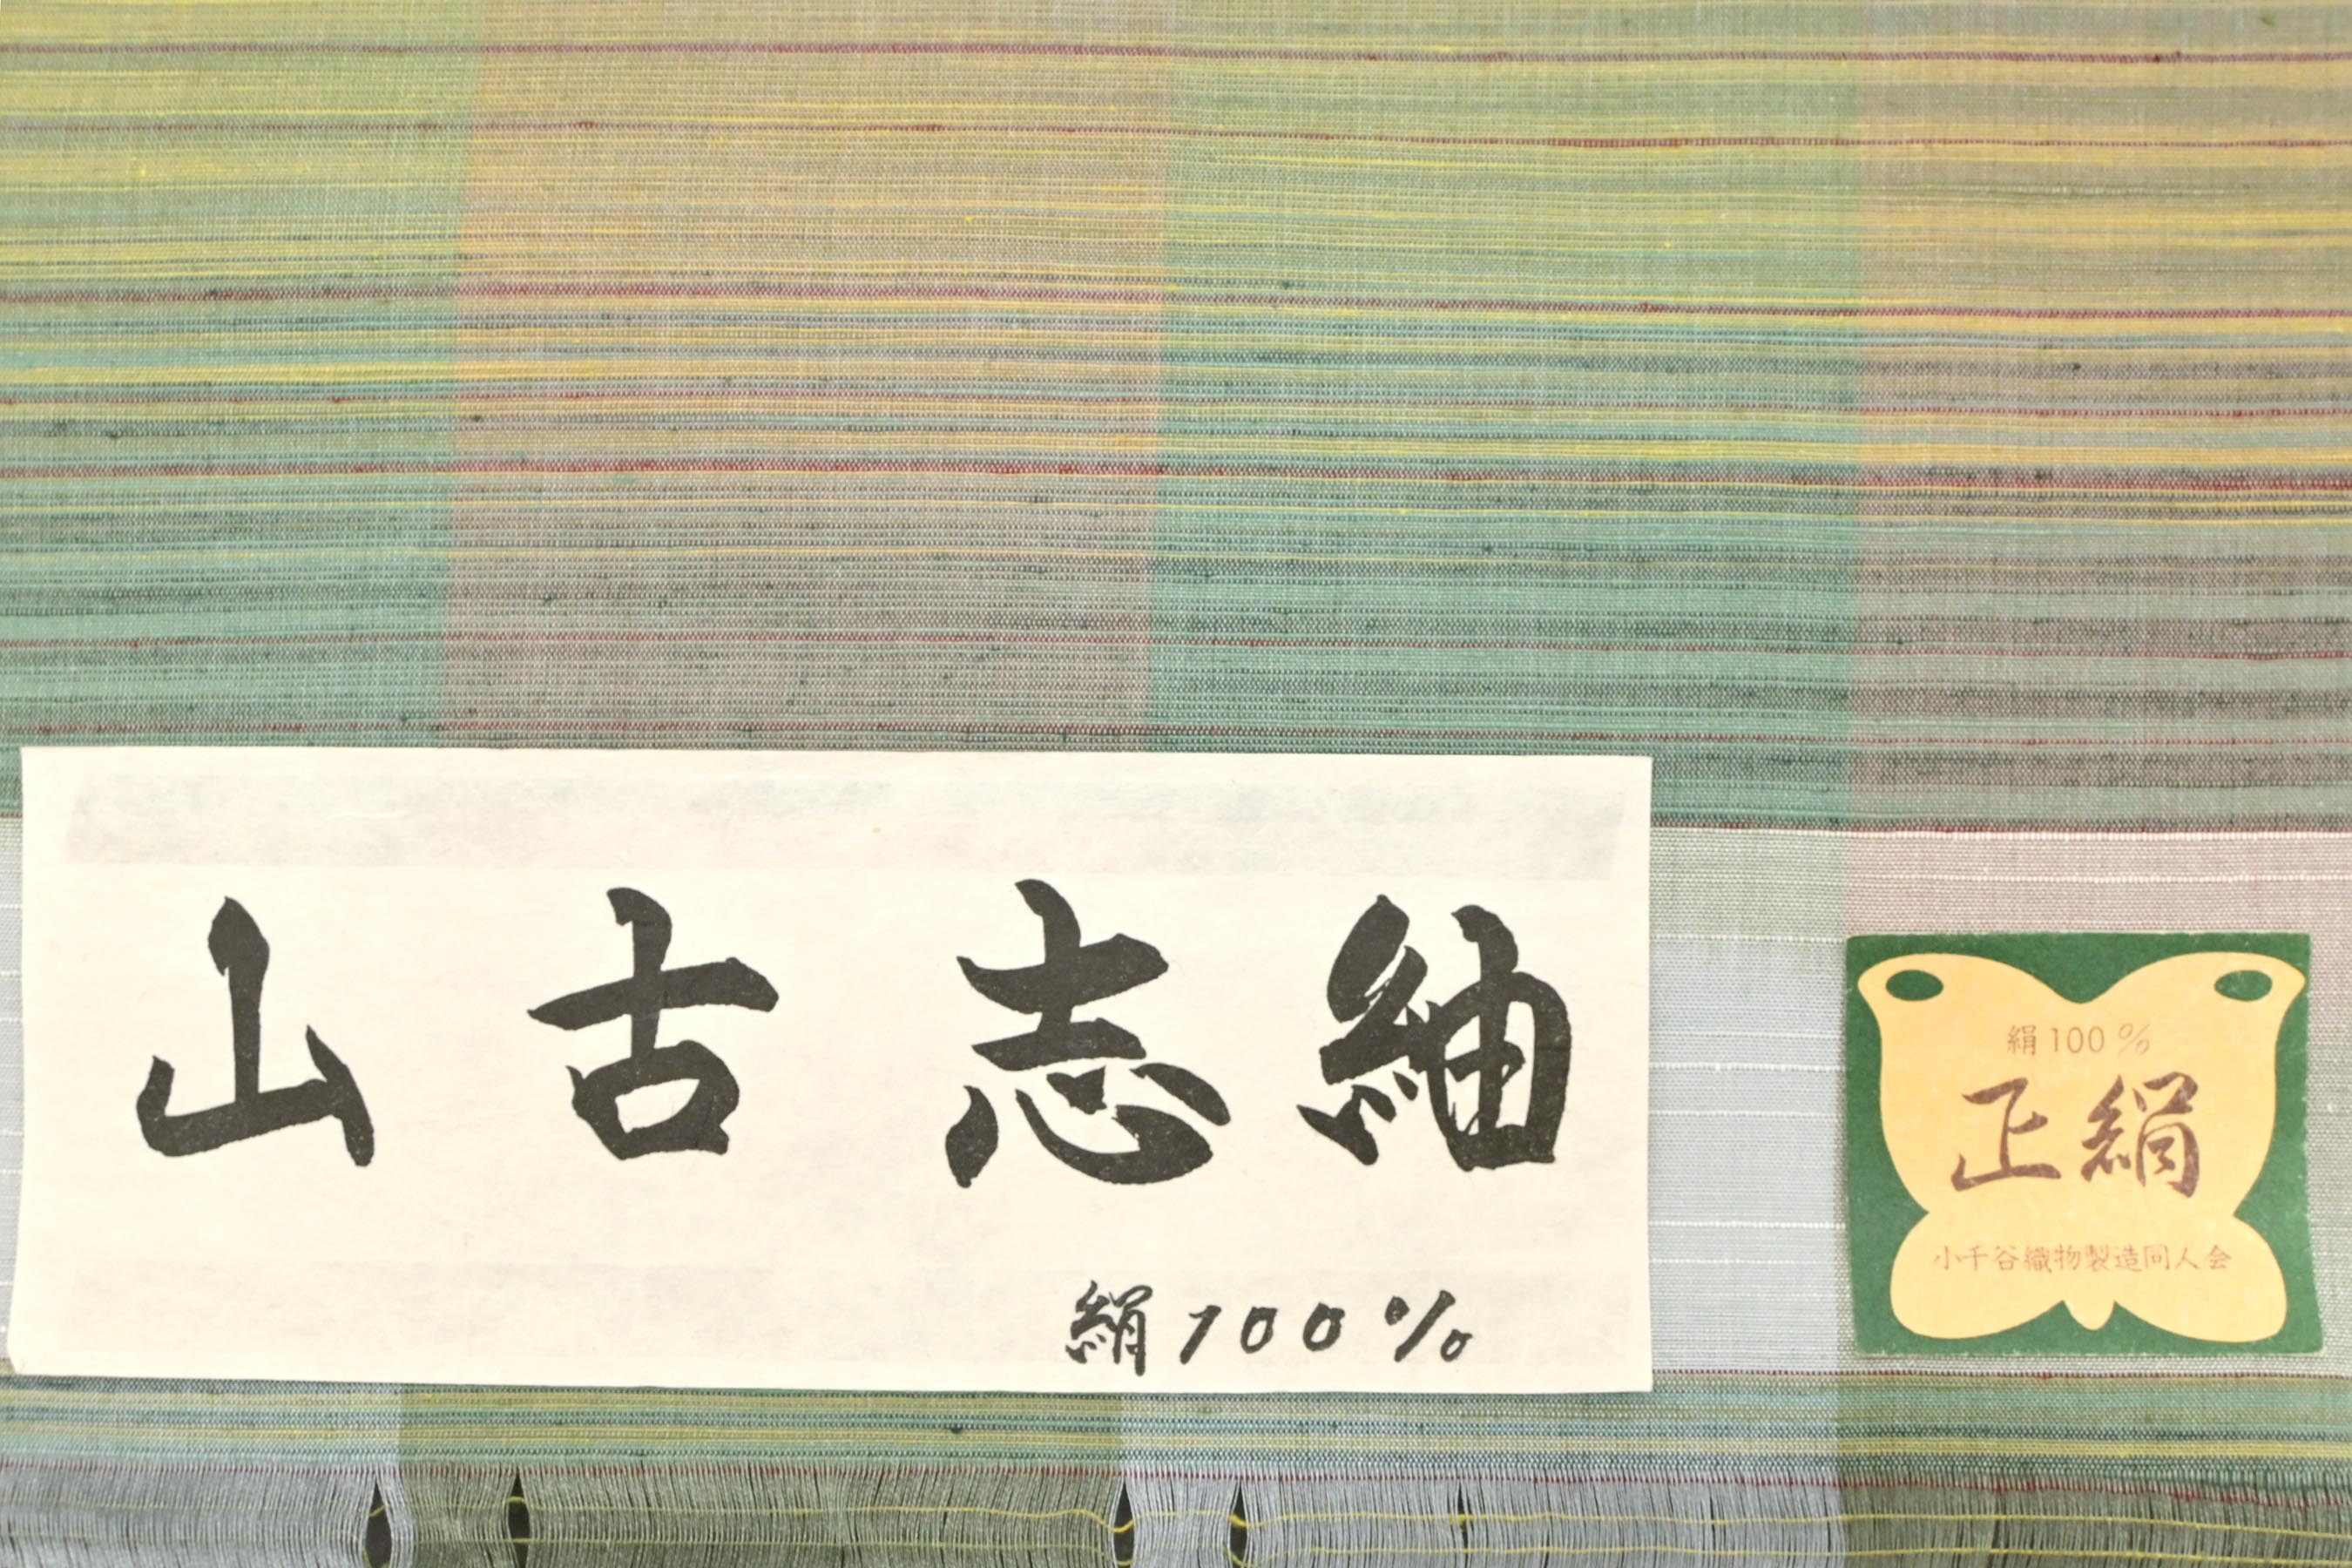 山古志紬
絹100%
絹100%
正絹
小千谷織物製造同人会